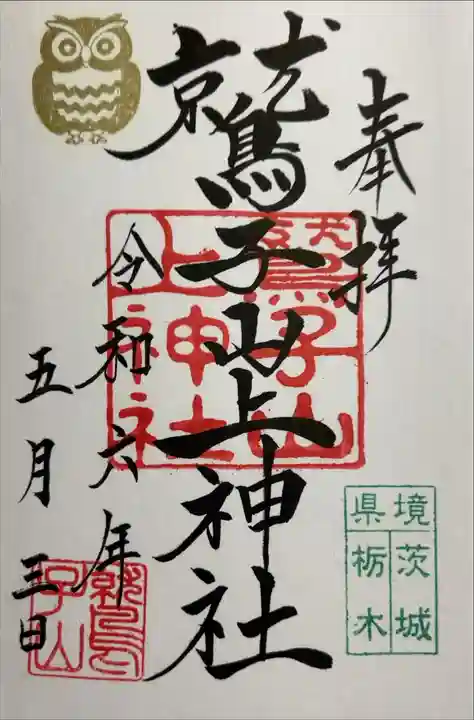 奉拝
鷲子山上神社
令和六年
五月三日
鷲子山
上神社
境 茨城
県 栃木
鷲
子山